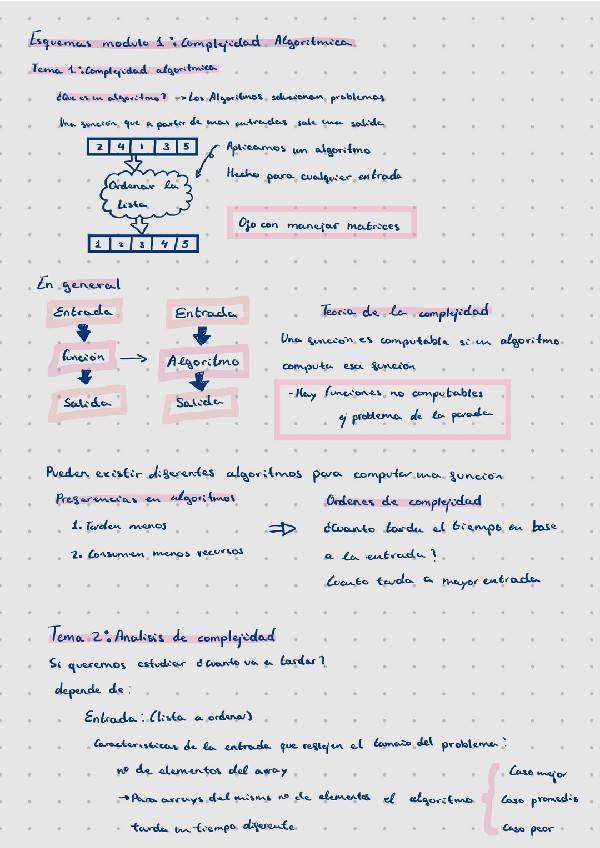 Esquemas modulo 1: Complejidad Algoritmica
Tema 1: Complejidad algoritmica
¿Que es un algoritmo? -> Los Algoritmos solucionan problemas
Una función que a partir de unas entradas sale una salida
2 4 1 3 5
Aplicamos un algoritmo
Ordenar la
lista
Hecho para cualquier entrada
Ojo con manejar matrices
1 2 3 4 5
En general
Entrada
Función
Salida
Entrada
Algoritmo
Salida
Teoria de la complejidad
Una función es computable si un algoritmo
computa esa función
- Hay funciones no computables
ej problema de la parada
Pueden existir diferentes algoritmos para computar una función
Preferencias en algoritmos
1. Tarden menos
2. Consuman menos recursos
Ordenes de complejidad
¿Cuanto tarda el tiempo en base
a la entrada?
Cuanto tarda a mayor entrada
Tema 2: Analisis de complejidad
Si queremos estudiar ¿Cuanto va a tardar?
depende de:
Entrada: (lista a ordenar)
Caracteristicas de la entrada que reflejen el tamaño del problema:
nº de elementos del array
-> Para arrays del mismo nº de elementos el algoritmo
tarda un tiempo diferente
Caso mejor
Caso promedio
Caso peor